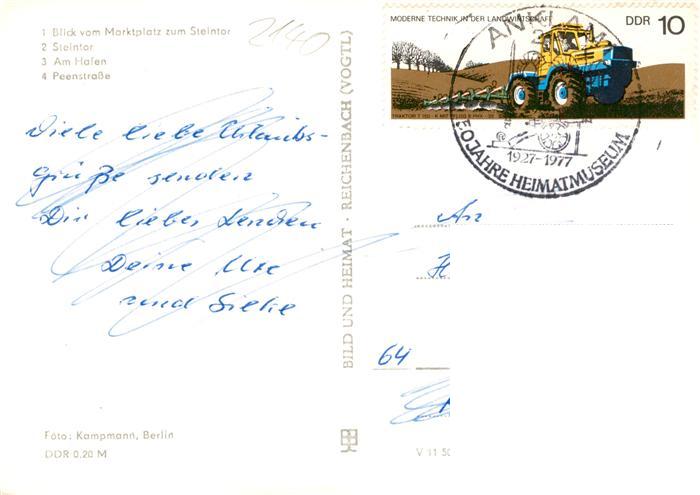 2140
1 Blick vom Marktplatz zum Steintor
2 Steintor
3 Am Hafen
4 Peenstraße
MODERNE TECHNIK IN DER LANDWIRTSCHAFT
DDR 10
ANKLAM
50 JAHRE HEIMATMUSEUM
1927-1977
Viele liebe Urlaubs-
grüße senden
Dir lieber
Deine Ute
und Silke
BILD UND HEIMAT · REICHENBACH (VOGTL)
An
H
64
Foto: Kampmann, Berlin
DDR 0,20 M
V 11 50